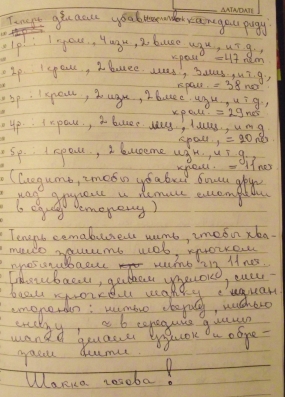 ДАТА/DATE
Теперь делаем убавления в каждом ряду:
1р.: 1 кром., 4 изн., 2 вмес. изн., и т.д.,
кром. = 47 пет
2р. 1 кром., 2 вмес. лиц, 3 лиц, и т.д.,
кром. = 38 по
3р.: 1 кром., 2 изн., 2 вмес. изн., и т.д.,
кром. = 29 по
4р.: 1 кром., 2 вмес лиц, 1 лиц, и т.д.
кром., = 20 по
5р.: 1 кром., 2 вместе изн., и т.д.,
кром. = 11 по
(Следить, чтобы убавки были друг
над другом и петли смотрели
в одну сторону)
Теперь оставляем нить, чтобы хва-
тило сшить шов, крючком
протягиваем нить из 11 по.
Стягиваем, делаем узелок, сши-
ваем крючком шапку с изнан
стороны: нитью сверху, нитью
снизу, в середине длины
шапки делаем узелок и обре-
заем нити.
Шапка готова!